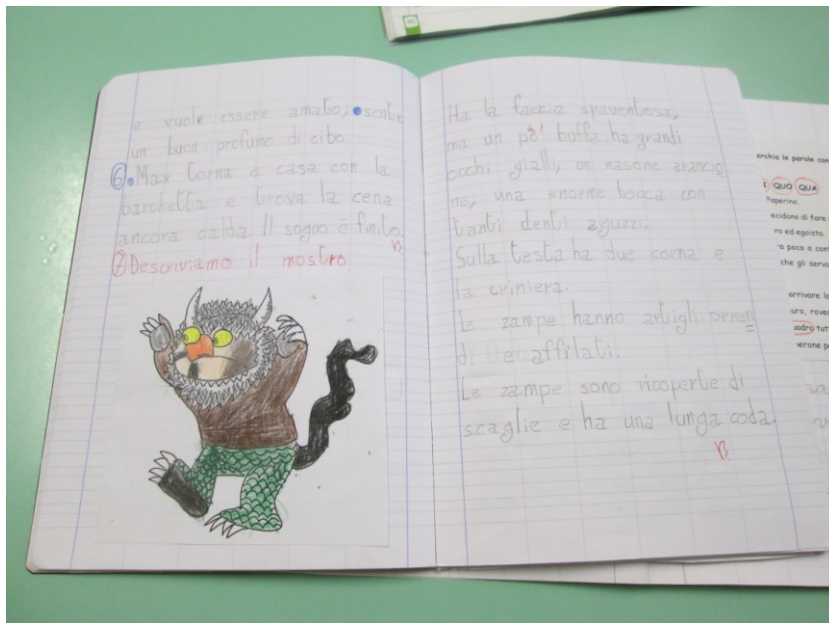 e vuole essere amato; sente
un buon profumo di cibo
6. Max torna a casa con la
barchetta e trova la cena
ancora calda Il sogno è finito.
7 Descriviamo il mostro
Ha la faccia spaventosa,
ma un pò' buffa ha grandi
occhi gialli, un nasone arancio
ne, una enorme bocca con
tanti denti aguzzi.
Sulla testa ha due corna e
la criniera.
Le zampe hanno artigli orren
di e affilati.
Le zampe sono ricoperte di
scaglie e ha una lunga coda.
erchia le parole con
QUO QUA
Paperino.
ecidono di fare
ro ed egoista.
a poco a com
che gli serv
arrivare l
uro, rove
uadro tut
verone p